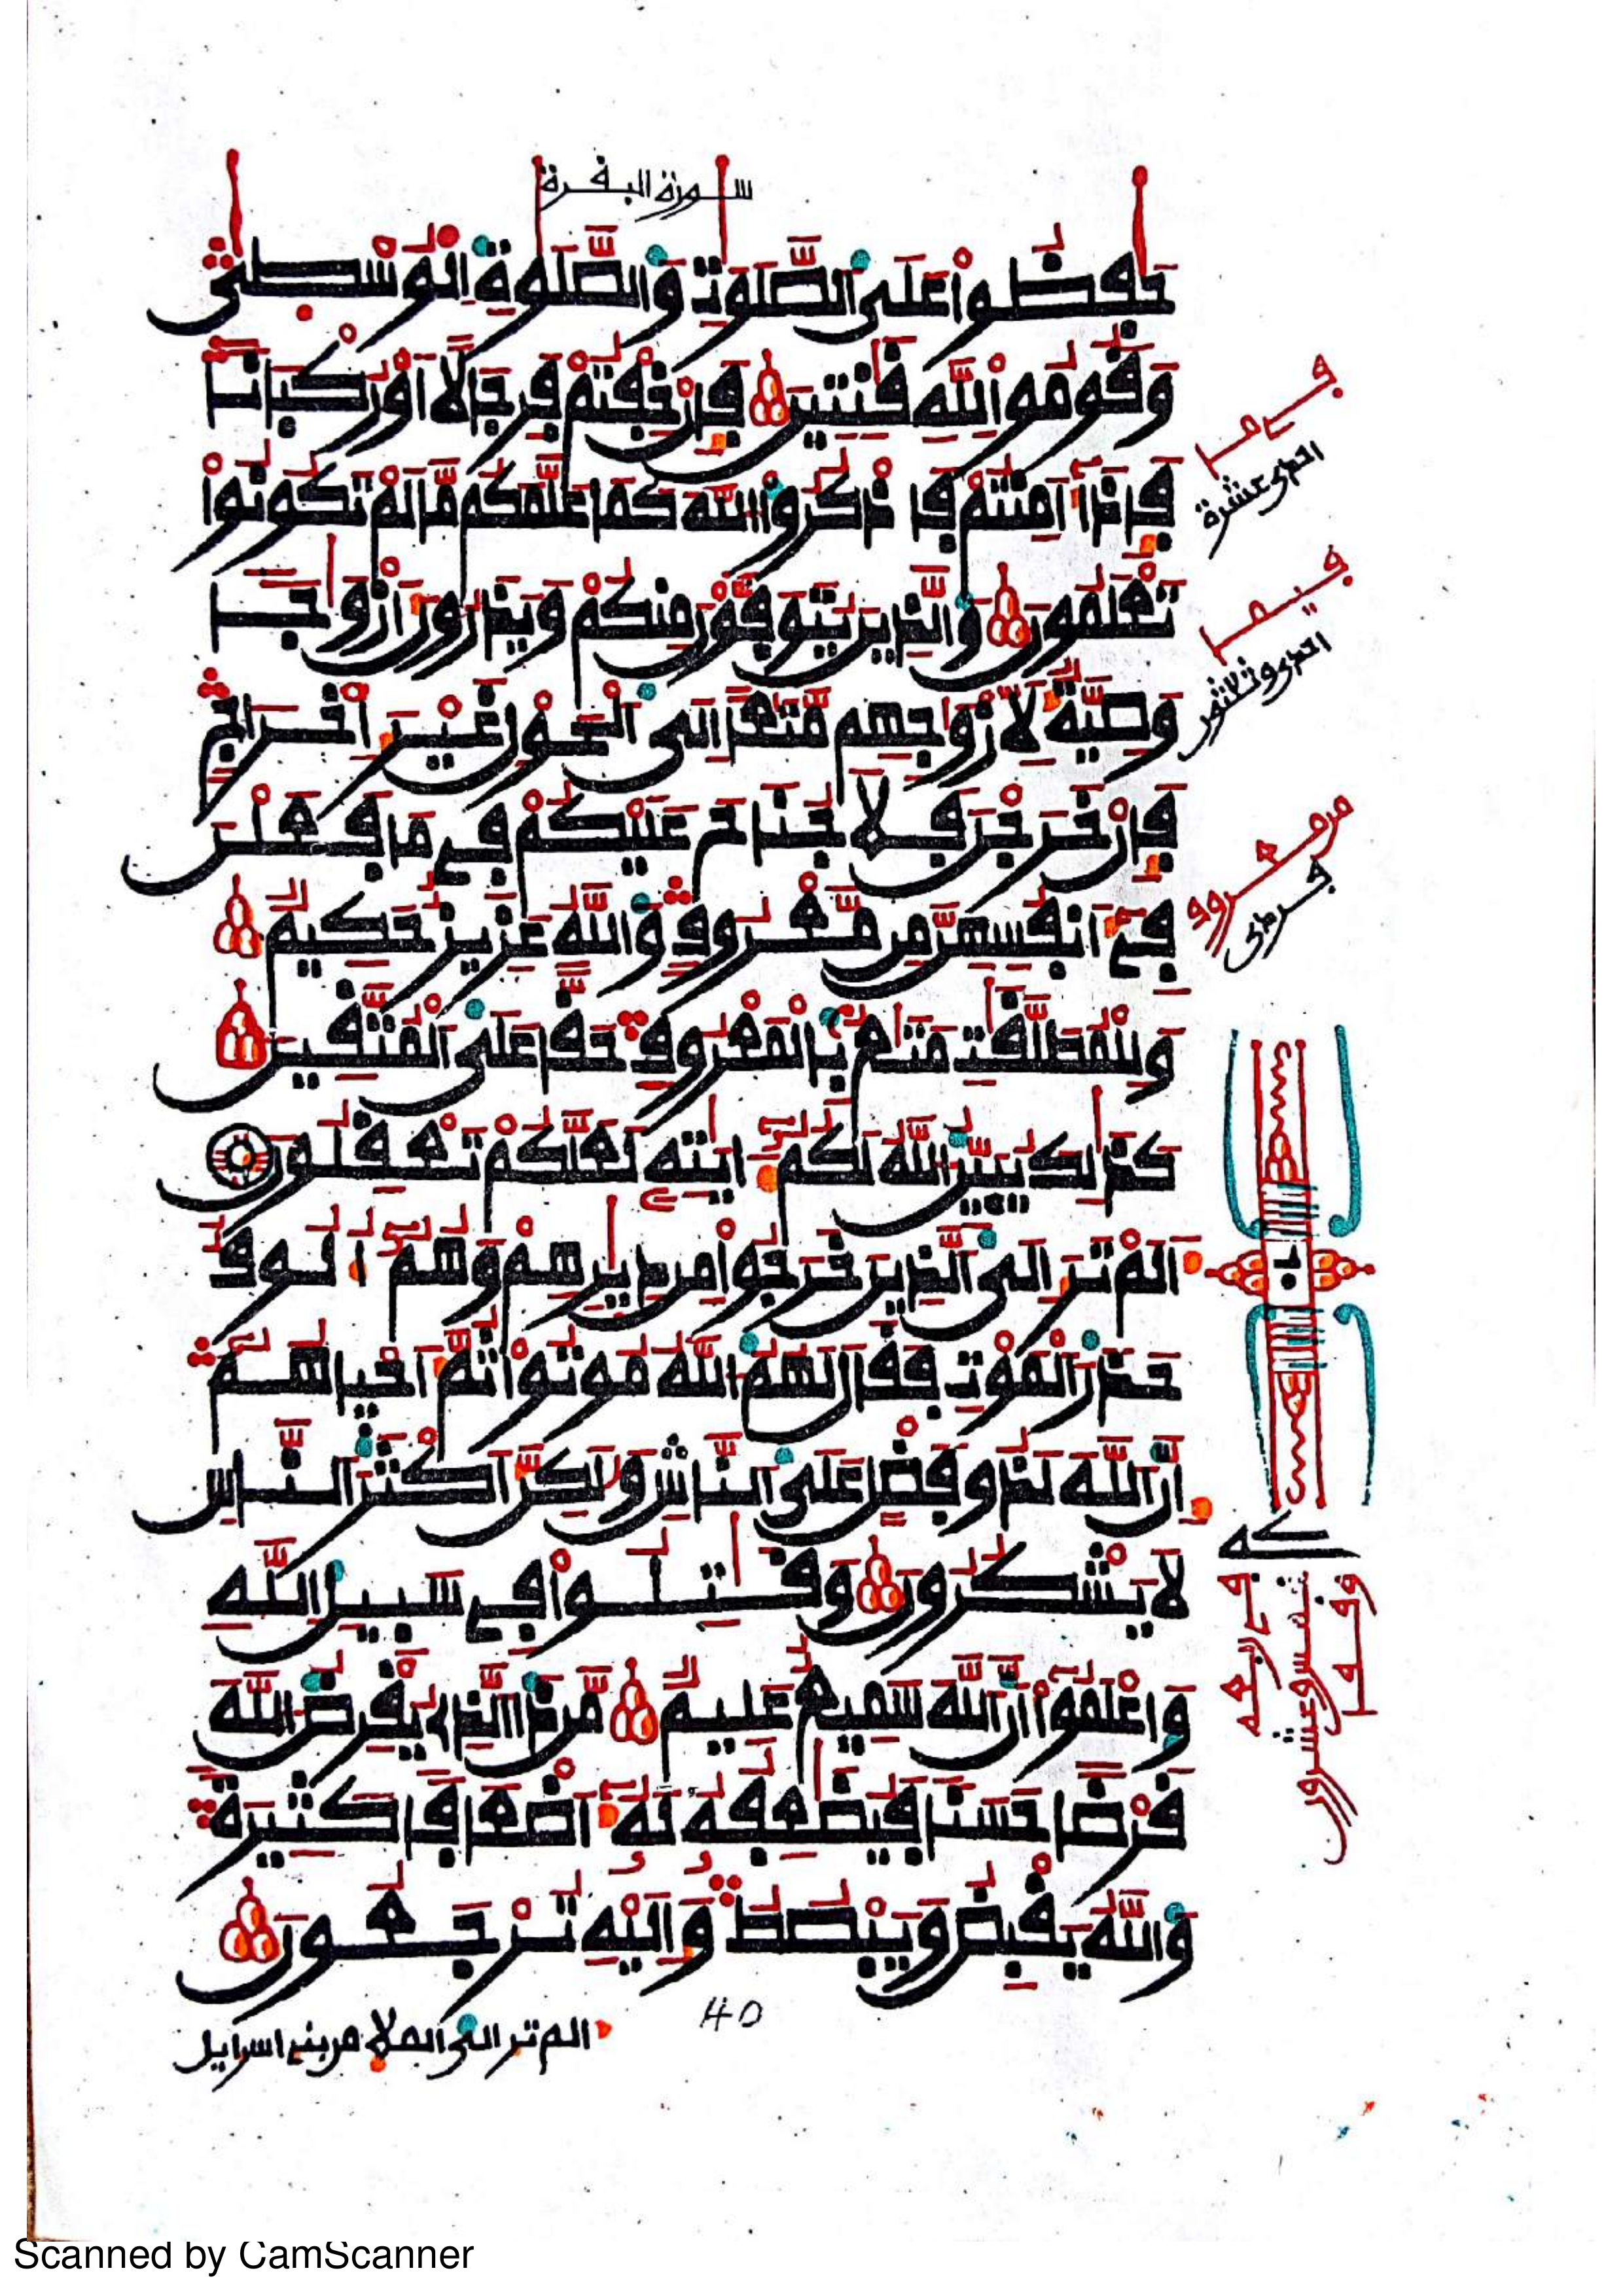 سورة البقرة
حَٰفِظُوا۟ عَلَى ٱلصَّلَوَٰتِ وَٱلصَّلَوٰةِ ٱلْوُسْطَىٰ
وَقُومُوا۟ لِلَّهِ قَٰنِتِينَ فَإِنْ خِفْتُمْ فَرِجَالًا أَوْ رُكْبَانًا
فَإِذَا أَمِنتُمْ فَاذْكُرُوا۟ ٱللَّهَ كَمَا عَلَّمَكُم مَّا لَمْ تَكُونُوا۟
تَعْلَمُونَ وَٱلَّذِينَ يُتَوَفَّوْنَ مِنكُمْ وَيَذَرُونَ أَزْوَٰجًا
وَصِيَّةٌ لِأَزْوَٰجِهِم مَّتَٰعًا إِلَى ٱلْحَوْلِ غَيْرَ إِخْرَاجٍ
فَإِنْ خَرَجْنَ فَلَا جُنَاحَ عَلَيْكُمْ فِي مَا فَعَلْنَ
فِي أَنفُسِهِنَّ مِن مَّعْرُوفٍ وَٱللَّهُ عَزِيزٌ حَكِيمٌ
وَلِلْمُطَلَّقَٰتِ مَتَٰعٌ بِالْمَعْرُوفِ حَقًّا عَلَى ٱلْمُتَّقِينَ
كَذَٰلِكَ يُبَيِّنُ ٱللَّهُ لَكُمْ ءَايَٰتِهِ لَعَلَّكُمْ تَعْقِلُونَ
أَلَمْ تَرَ إِلَى ٱلَّذِينَ خَرَجُوا۟ مِن دِيَٰرِهِمْ وَهُمْ أُلُوفٌ
حَذَرَ ٱلْمَوْتِ فَقَالَ لَهُمُ ٱللَّهُ مُوتُوا۟ ثُمَّ أَحْيَاهُمْ
إِنَّ ٱللَّهَ لَذُو فَضْلٍ عَلَى ٱلنَّاسِ وَلَٰكِنَّ أَكْثَرَ ٱلنَّاسِ
لَا يَشْكُرُونَ وَقَٰتِلُوا۟ فِي سَبِيلِ ٱللَّهِ
وَاعْلَمُوا۟ أَنَّ ٱللَّهَ سَمِيعٌ عَلِيمٌ مَّن ذَا ٱلَّذِي يُقْرِضُ ٱللَّهَ
قَرْضًا حَسَنًا فَيُضَٰعِفُهُ لَهُ أَضْعَافًا كَثِيرَةً
وَٱللَّهُ يَقْبِضُ وَيَبْصُطُ وَإِلَيْهِ تُرْجَعُونَ
40
الم تر الى الملا من بني اسرايل
في ما
احدى عشرة
فيما
احدى وثلاثون
من معروف
فردى
Scanned by CamScanner